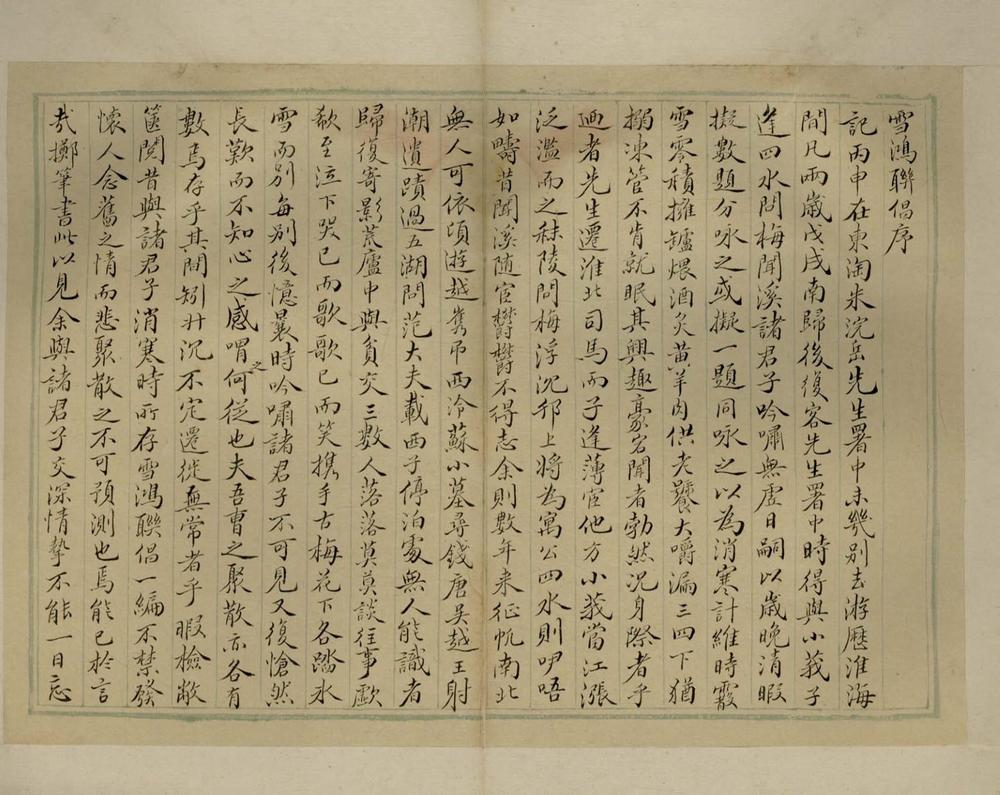 雪鴻聯倡序
記丙申在東淘朱浣岳先生署中未幾別去游歷淮海
間凡兩歲戊戌南歸後復客先生署中時得與小莪子
逢四水問梅聞溪諸君子吟嘯無虛日嗣以歲晚清暇
擬數題分咏之或擬一題同咏之以為消寒計維時霰
雪零積擁鑪煨酒炙黃羊肉供老饕大嚼漏三四下猶
搦凍管不肯就眠其興趣豪宕聞者勃然況身際者乎
迺者先生遷淮北司馬而子逢薄宦他方小莪當江漲
泛濫而之秣陵問梅浮沉邗上將為寓公四水則吚唔
如疇昔聞溪随宦欝欝不得志余則數年来征帆南北
無人可依頃游越雋吊西泠蘇小墓尋錢唐吳越王射
潮遺蹟過五湖問范大夫載西子停泊處無人能識者
歸復寄影荒廬中與貧交三數人落落莫莫談往事歔
欷至泣下哭已而歌歌已而笑携手古梅花下各踏冰
雪而別每別後憶曩時吟嘯諸君子不可見又復愴然
長歎而不知心之感喟之何從也夫吾曹之聚散亦各有
數焉存乎其間矧升沉不定遷徙無常者乎暇檢敝
篋閱昔與諸君子消寒時所存雪鴻聯倡一編不禁發
懷人念舊之情而悲聚散之不可預測也焉能已於言
哉擲筆書此以見余與諸君子交深情摯不能一日忘